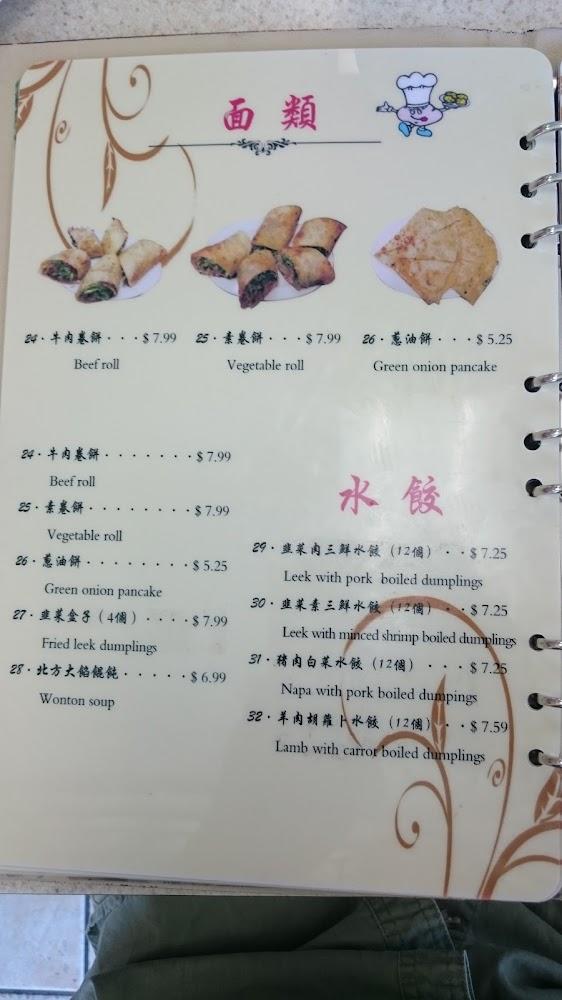 面 類
24 · 牛肉卷餅 · · · $ 7.99
Beef roll
25 · 素卷餅 · · · · $ 7.99
Vegetable roll
26 · 蔥油餅 · · · $ 5.25
Green onion pancake
24 · 牛肉卷餅 · · · · · · · $ 7.99
Beef roll
25 · 素卷餅 · · · · · · · · $ 7.99
Vegetable roll
26 · 蔥油餅 · · · · · · · · $ 5.25
Green onion pancake
27 · 韭菜盒子（4個）· · · · $ 7.99
Fried leek dumplings
28 · 北方大餡餛飩 · · · · · $ 6.99
Wonton soup
水 餃
29 · 韭菜肉三鮮水餃（12個） · · $ 7.25
Leek with pork boiled dumplings
30 · 韭菜素三鮮水餃（12個） · · $ 7.25
Leek with minced shrimp boiled dumplings
31 · 豬肉白菜水餃（12個） · · · $ 7.25
Napa with pork boiled dumpings
32 · 羊肉胡蘿卜水餃（12個） · · $ 7.59
Lamb with carrot boiled dumplings